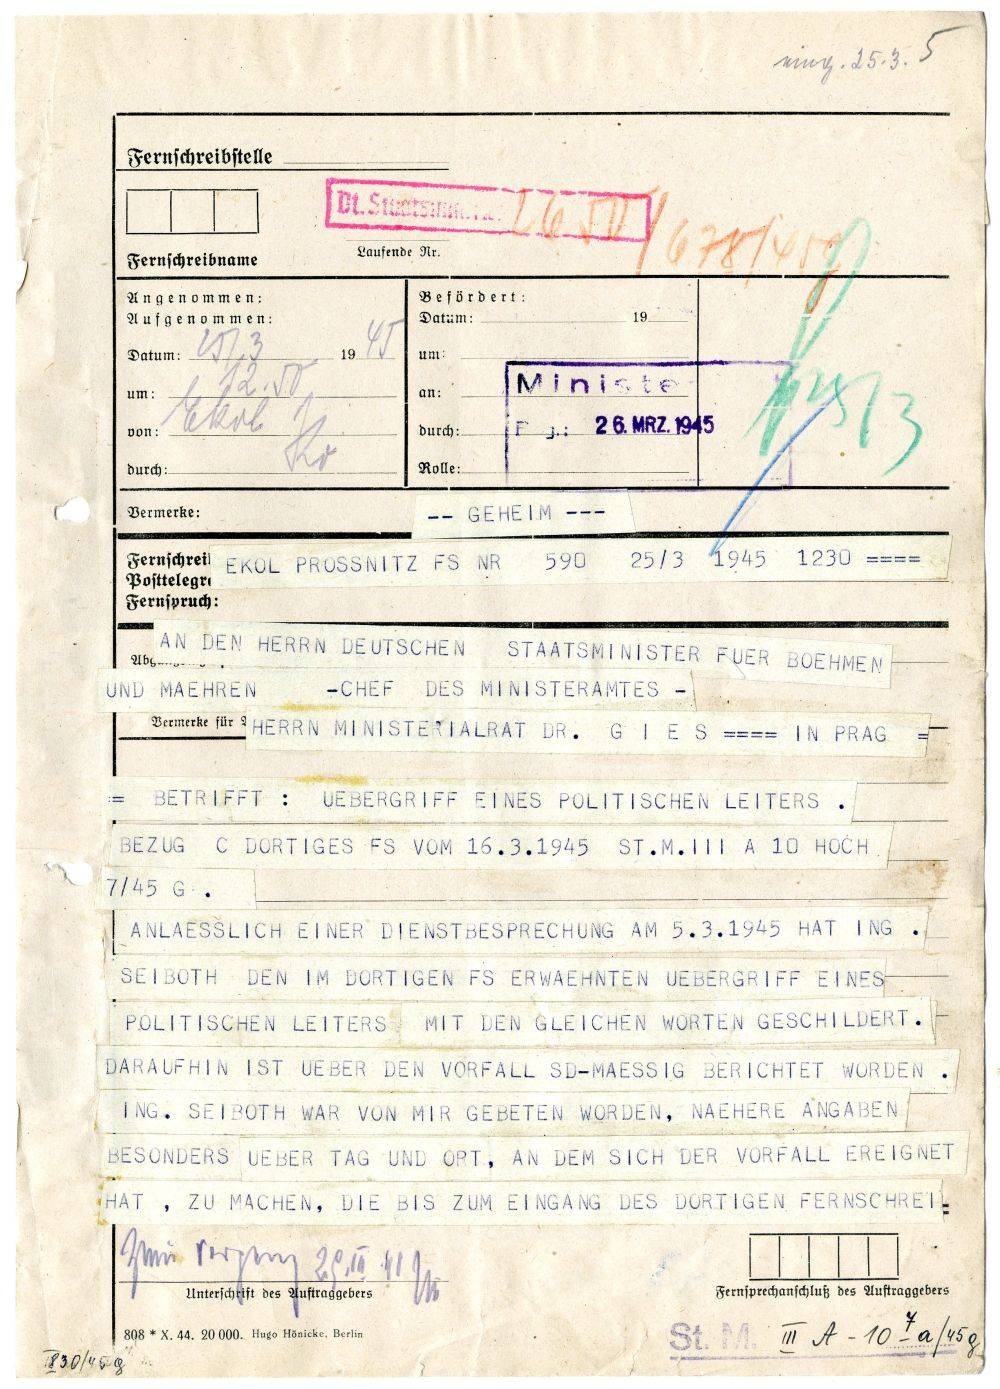 eing. 25.3. 5
Fernschreibstelle
Dt. Staatsmin.
678/45g
Fernschreibname
Laufende Nr.
Angenommen:
Aufgenommen:
Datum: 25/3 1945
um: 12.50
von: Ekol
durch:
Befördert:
Datum: 19
um:
an:
durch:
Rolle:
Ministe
26. MRZ. 1945
25/3
Vermerke:
-- GEHEIM ---
Fernschrei
Posttelegr
Fernspruch:
EKOL PROSSNITZ FS NR 590 25/3 1945 1230 ====
AN DEN HERRN DEUTSCHEN STAATSMINISTER FUER BOEHMEN
UND MAEHREN -CHEF DES MINISTERAMTES -
Vermerke für
HERRN MINISTERIALRAT DR. G I E S ==== IN PRAG =
= BETRIFFT : UEBERGRIFF EINES POLITISCHEN LEITERS .
BEZUG C DORTIGES FS VOM 16.3.1945 ST.M.III A 10 HOCH
7/45 G .
ANLAESSLICH EINER DIENSTBESPRECHUNG AM 5.3.1945 HAT ING .
SEIBOTH DEN IM DORTIGEN FS ERWAEHNTEN UEBERGRIFF EINES
POLITISCHEN LEITERS MIT DEN GLEICHEN WORTEN GESCHILDERT.
DARAUFHIN IST UEBER DEN VORFALL SD-MAESSIG BERICHTET WORDEN .
ING. SEIBOTH WAR VON MIR GEBETEN WORDEN, NAEHERE ANGABEN
BESONDERS UEBER TAG UND ORT, AN DEM SICH DER VORFALL EREIGNET
HAT , ZU MACHEN, DIE BIS ZUM EINGANG DES DORTIGEN FERNSCHREI-
Unterschrift des Auftraggebers
Fernsprechanschluß des Auftraggebers
808 * X. 44. 20 000. Hugo Hönicke, Berlin
St. M. III A - 10 7 a/45g
830/45g